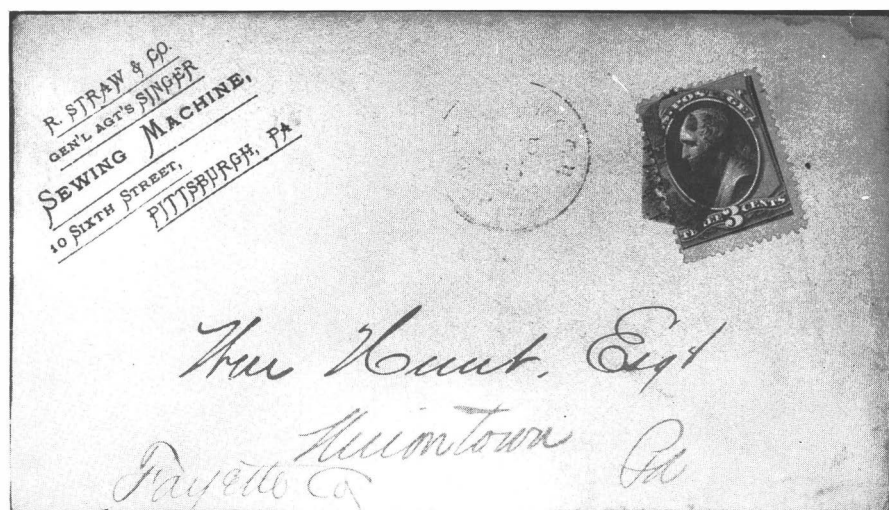 R. STRAW & CO.
GEN'L AGT'S SINGER
SEWING MACHINE,
10 SIXTH STREET,
PITTSBURGH, PA
U.S. POSTAGE
THREE 3 CENTS
Wm Hunt, Esqr
Uniontown
Fayette Co Pa